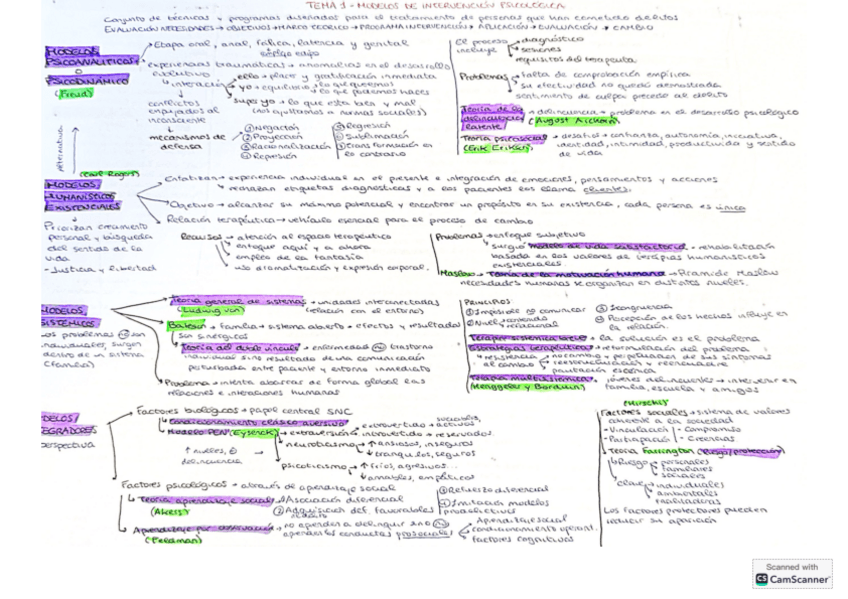 TEMA 1 - MODELOS DE INTERVENCIÓN PSICOLÓGICA
Conjunto de técnicas y programas diseñados para el tratamiento de personas que han cometido delitos
EVALUACIÓN NECESIDADES → OBJETIVOS → MARCO TEÓRICO → PROGRAMA INTERVENCIÓN → APLICACIÓN → EVALUACIÓN → CAMBIO
MODELOS PSICOANALÍTICOS O PSICODINÁMICO
(Freud)
Etapa oral, anal, fálica, latencia y genital
experiencias traumáticas → anomalías en el desarrollo evolutivo
interacción
ello → placer y gratificación inmediata
yo → equilibrio
lo que queremos
lo que podemos hacer
super yo → lo que está bien y mal
(nos ajustamos a normas sociales)
conflictos
empujados al
inconsciente
mecanismos de defensa
① Negación
② Proyección
③ Racionalización
④ Represión
⑤ Regresión
⑥ Sublimación
⑦ transformación en lo contrario
El proceso incluye
diagnóstico
sesiones
requisitos del terapeuta
Problemas
falta de comprobación empírica
su efectividad no quedó demostrada
sentimiento de culpa precede al delito
Teoría de la delincuencia latente → delincuencia → problema en el desarrollo psicológico
(August Aichorn)
Teoría psicosocial → desafíos → confianza, autonomía, iniciativa,
(Erik Erikson) identidad, intimidad, productividad y sentido
de vida
alternativa
(Carl Rogers)
MODELOS HUMANÍSTICOS EXISTENCIALES
Enfatizan → experiencia individual en el presente e integración de emociones, pensamientos y acciones
rechazan etiquetas diagnósticas y a los pacientes los llama clientes.
Objetivo → alcanzar su máximo potencial y encontrar un propósito en su existencia, cada persona es única
Relación terapéutica → vehículo esencial para el proceso de cambio
Priorizan crecimiento
personal y búsqueda
del sentido de la
vida
- Justicia y libertad
Recursos → atención al espacio terapéutico
enfoque aquí y ahora
empleo de la fantasía
uso dramatización y expresión corporal.
Problemas → enfoque subjetivo
surgió modelo de vida satisfactoria → rehabilitación
basada en los valores de terapias humanísticos
existenciales
Maslow → Teoría de la motivación humana → Pirámide Maslow
necesidades humanas se organizan en distintos niveles.
MODELOS SISTÉMICOS
los problemas no son
individuales, surgen
dentro de un sistema
(familia)
Teoría general de sistemas → unidades interconectadas
(Ludwig von) (relación con el entorno)
Bateson → familia → sistema abierto → efectos y resultados
son sinérgicos
Teoría del doble vínculo → enfermedad no trastorno
individual sino resultado de una comunicación
perturbada entre paciente y entorno inmediato
Problema → intenta abarcar de forma global las
relaciones e interacciones humanas
PRINCIPIOS
① Imposible no comunicar
② Nivel
contenido
relacional
③ Incongruencia
④ Percepción de los hechos influye en la relación.
Terapia sistémica breve → la solución es el problema
Estrategias terapéuticas → reformulación del problema
resistencia al cambio
no cambio → perpetuación de sus síntomas
Terapia multisistémica → jóvenes delincuentes → intervenir en
(Henggeler y Borduin) familia, escuela y amigos
MODELOS INTEGRADORES
perspectiva
Factores biológicos → papel central SNC
Condicionamiento clásico aversivo
Modelo PEN (Eysenck)
extraversión
extrovertido → sociables, activos
introvertido → reservados
neuroticismo → ↑ ansiosos, inseguros
↓ tranquilos, seguros
psicoticismo → ↑ fríos, agresivos...
↓ amables, empáticos
↑ niveles, ⊕
delincuencia
Factores psicológicos → através de aprendizaje social
Teoría aprendizaje social
(Akers)
① Asociación diferencial
② Adquisición def. favorables
③ Refuerzo diferencial
④ Imitación modelos prodelictivos
Aprendizaje por observación → no aprenden a delinquir sino no
(Feldman) aprenden conductas prosociales
Aprendizaje social
condicionamiento operant.
factores cognitivos
(Hirschi)
Factores sociales → sistema de valores
conecte a la sociedad
- Vinculación - Compromiso
- Participación - Creencias
Teoría Farrington (Riesgo/protección)
Riesgo
personales
familiares
sociales
individuales
ambientales
Los factores protectores pueden
reducir su aparición
Scanned with
CS CamScanner